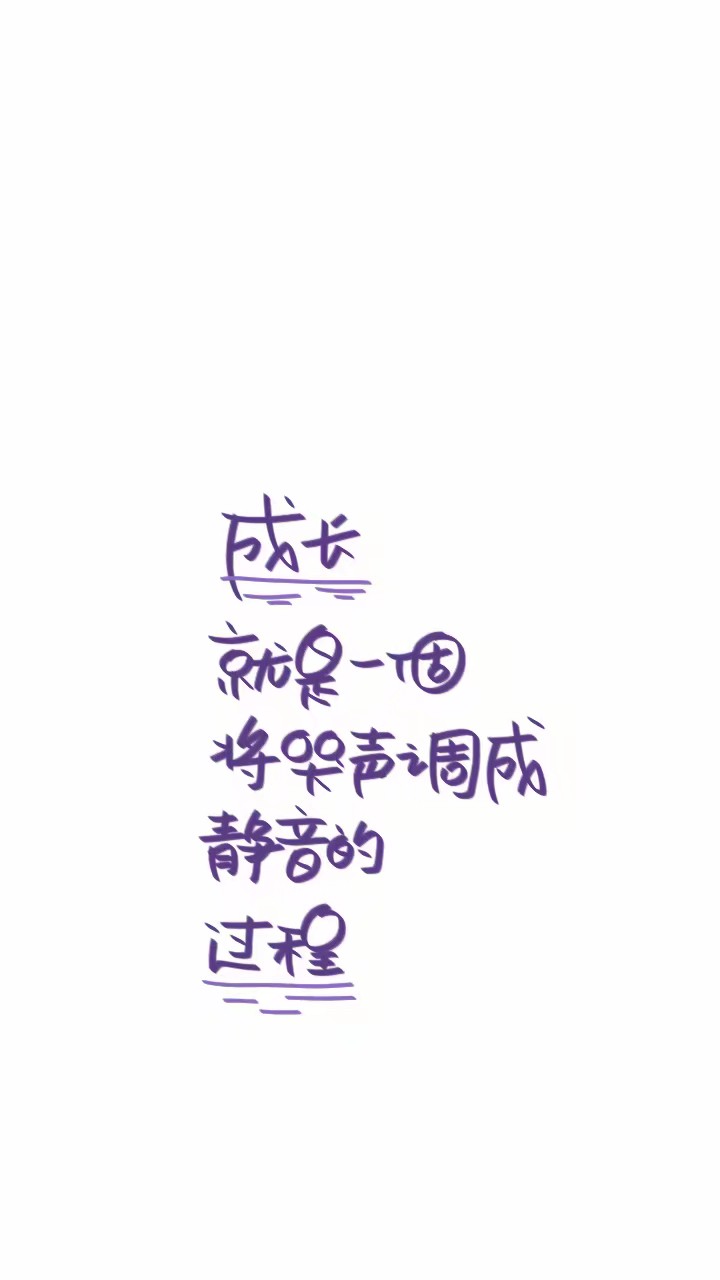 成长
就是一個
将哭声调成
静音的
过程